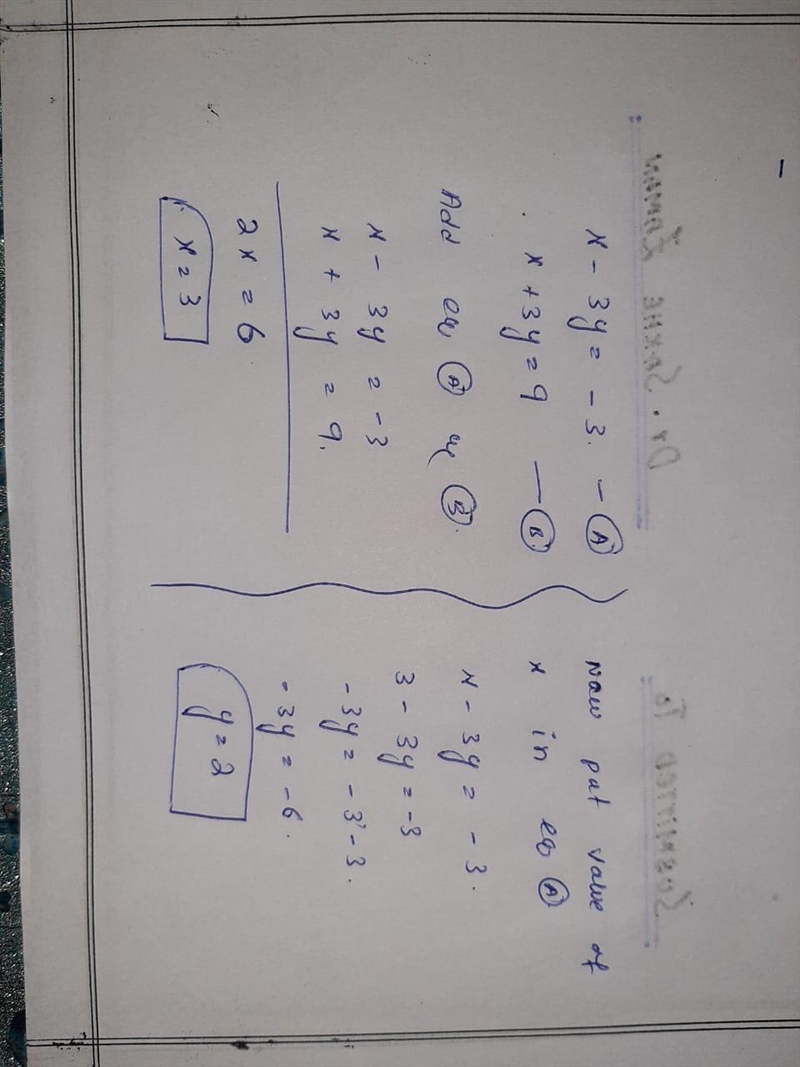 x - 3y = - 3. - (A)
x + 3y = 9 — (B)
Add eq (A) & (B).
x - 3y = -3
x + 3y = 9.
2x = 6.
x = 3
Now put value of
x in eq (A)
x - 3y = - 3.
3 - 3y = -3
-3y = -3 -3.
-3y = -6.
y = 2